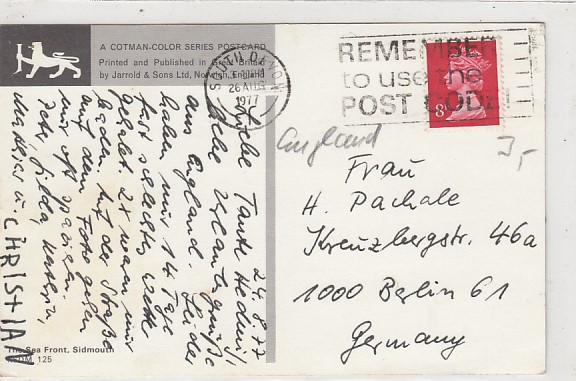 A COTMAN-COLOR SERIES POSTCARD
Printed and Published in Great Britain
by Jarrold & Sons Ltd, Norwich, England
SOUTH DEVON
26 AUG
1977
REMEMBER
to use the
POST CODE
8P
England
3,-
Frau
H. Pachale
Kreuzbergstr. 46a
1000 Berlin 61
Germany
24.8.77
Liebe Tante Hedwig!
Liebe Urlaubsgrüße
aus England. Leider
haben wir 14 Tage
fast schlechtes Wetter
gehabt. 2x waren wir
baden. Auf der Straße
auf dem Foto gehen
wir oft spazieren.
Jens, Gilda, Kathrin,
Mathias u. CHRISTIAN
The Sea Front, Sidmouth
125